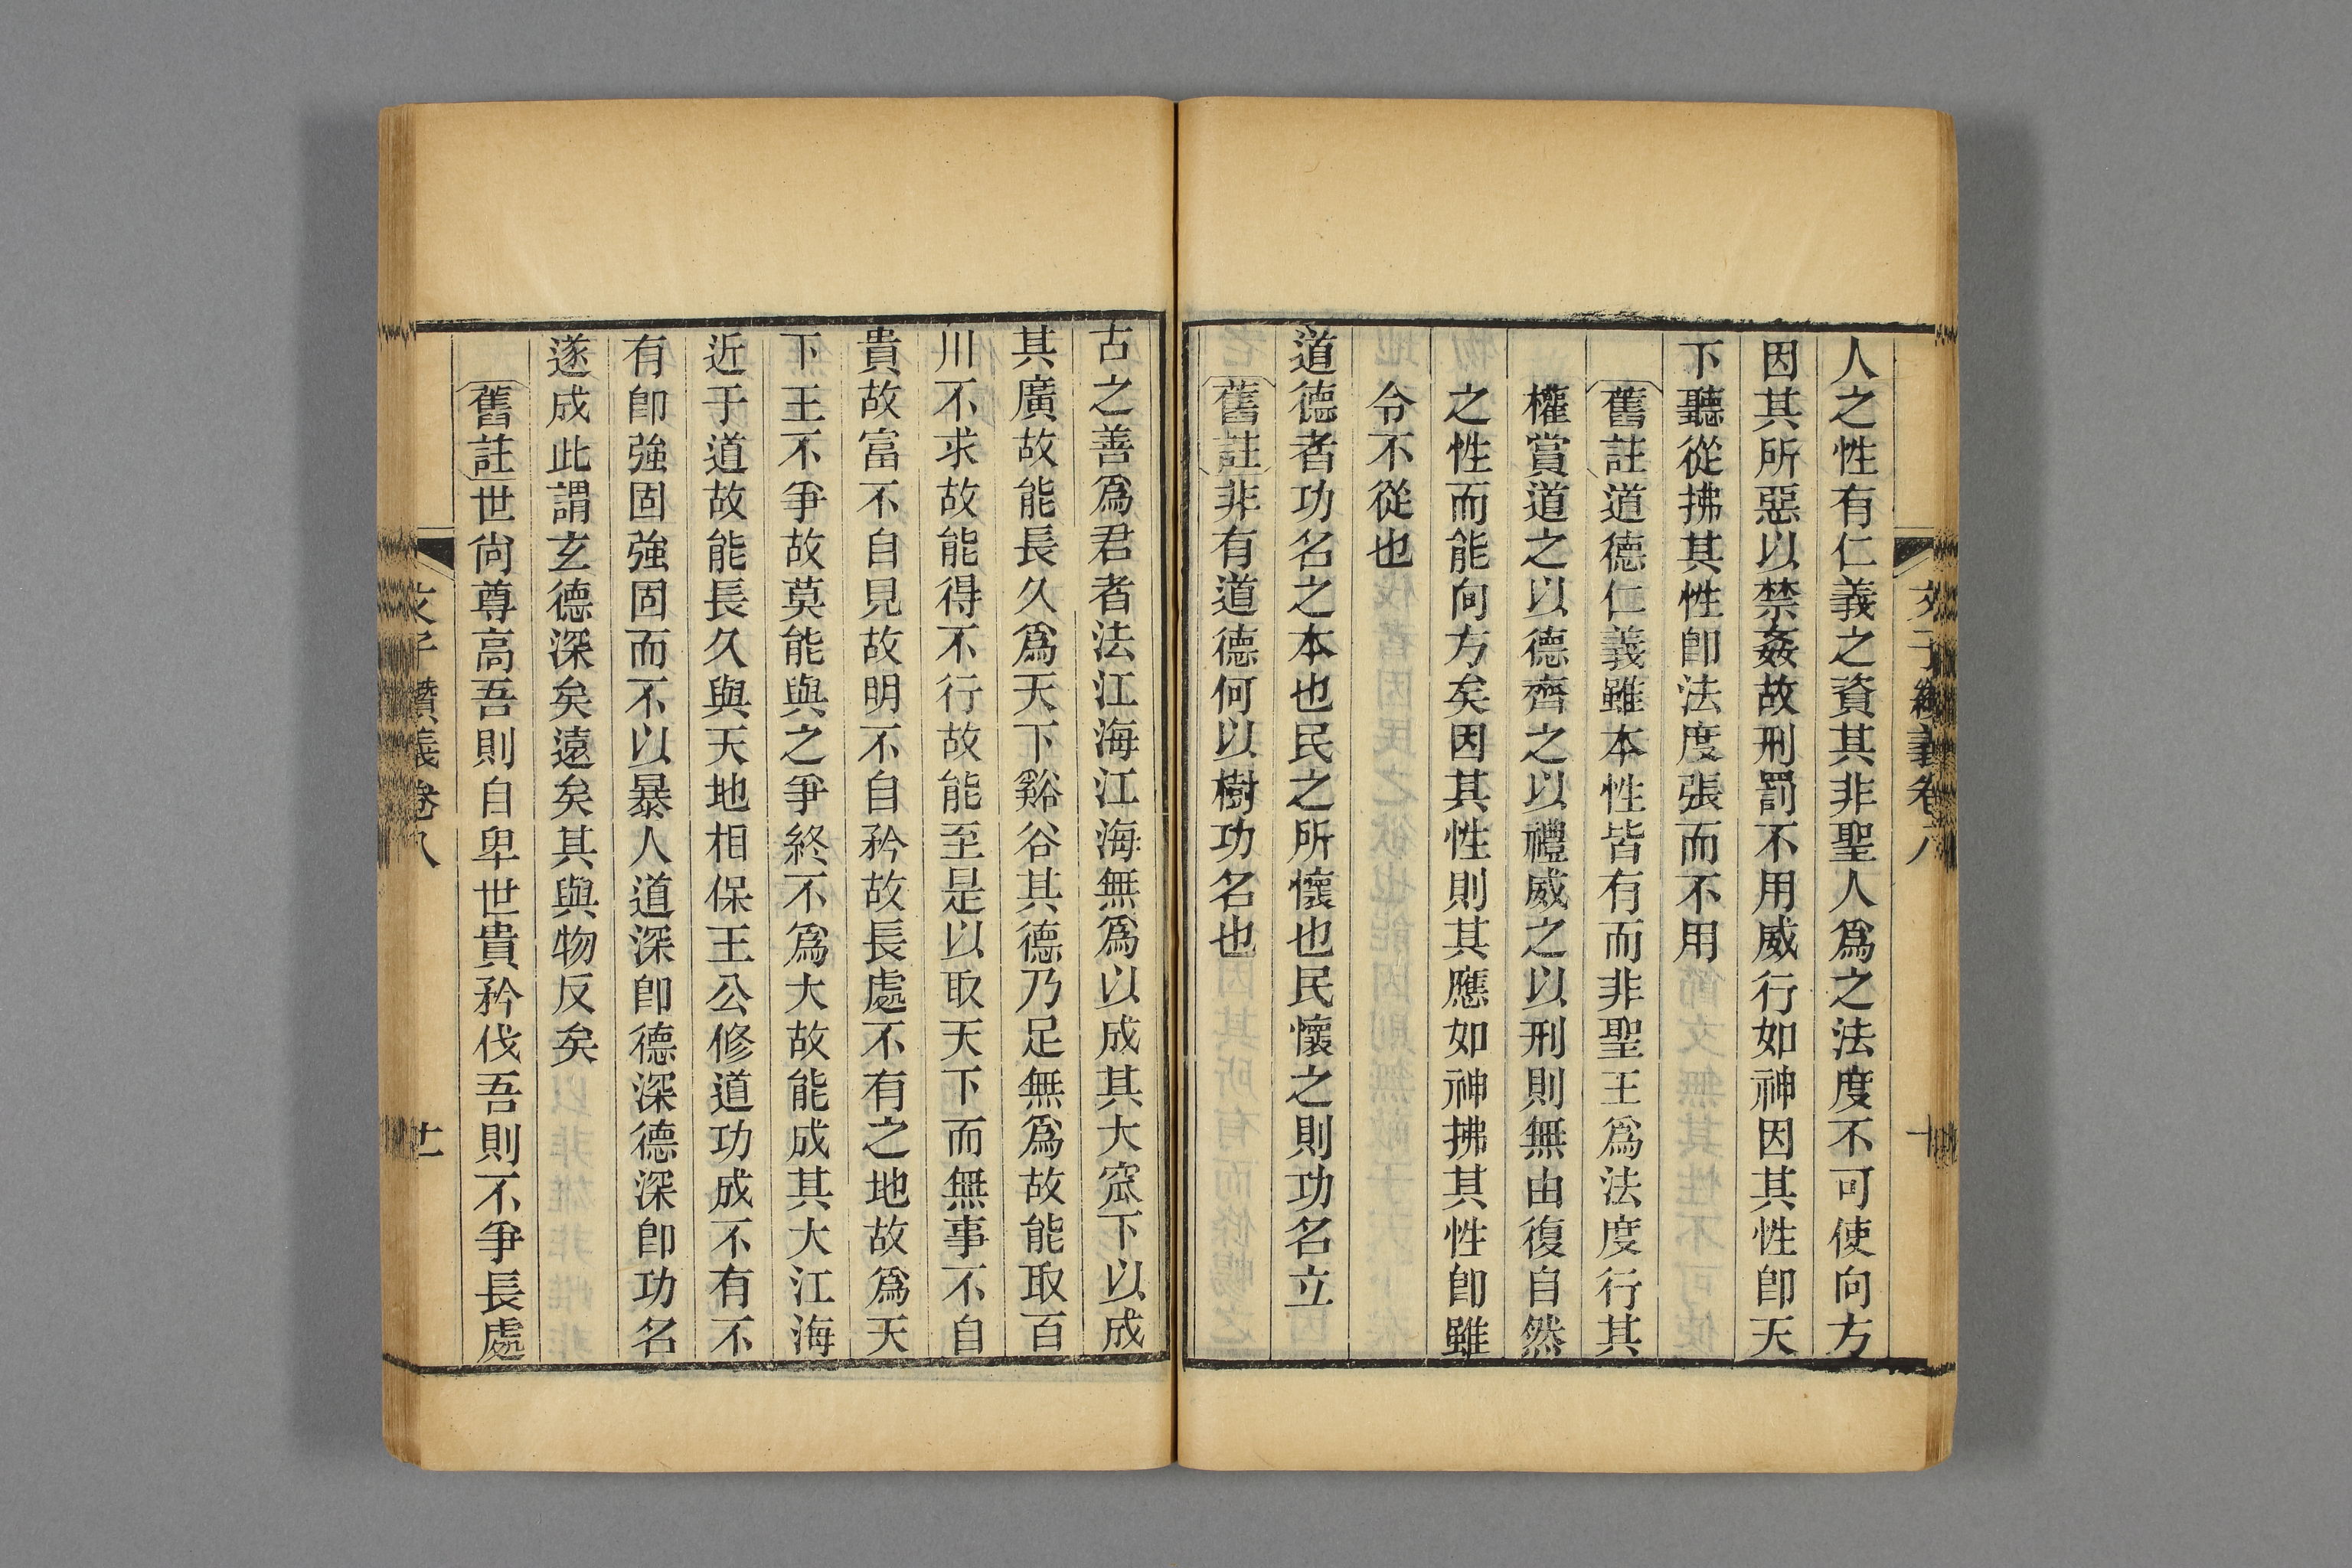 人之性有仁義之資其非聖人爲之法度不可使向方
因其所惡以禁姦故刑罰不用威行如神因其性卽天
下聽從拂其性卽法度張而不用
舊註道德仁義雖本性皆有而非聖王爲法度行其
權賞道之以德齊之以禮威之以刑則無由復自然
之性而能向方矣因其性則其應如神拂其性卽雖
令不從也
道德者功名之本也民之所懷也民懷之則功名立
舊註非有道德何以樹功名也
古之善爲君者法江海江海無爲以成其大窊下以成
其廣故能長久爲天下谿谷其德乃足無爲故能取百
川不求故能得不行故能至是以取天下而無事不自
貴故富不自見故明不自矜故長處不有之地故爲天
下王不爭故莫能與之爭終不爲大故能成其大江海
近于道故能長久與天地相保王公修道功成不有不
有卽強固強固而不以暴人道深卽德深德深卽功名
遂成此謂玄德深矣遠矣其與物反矣
舊註世尙尊高吾則自卑世貴矜伐吾則不爭長處
文子纘義卷八
十一